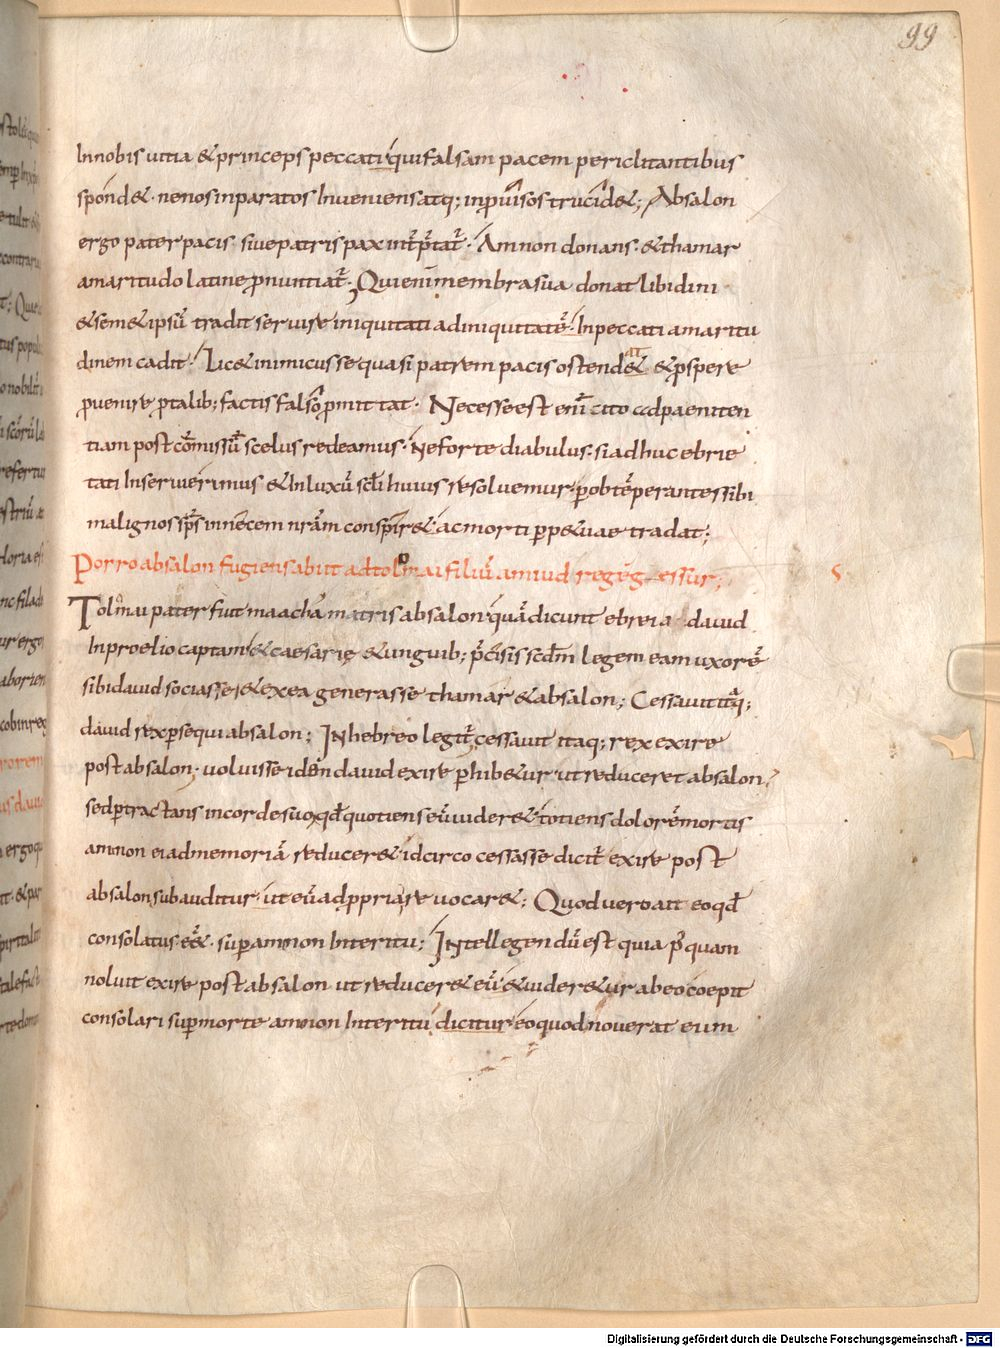 99
In nobis uitia & princeps peccati qui falsam pacem periclitantibus
spond&· ne nos inparatos Inueniens atq; inpuisos trucid&; Absalon
ergo pater pacis· siue patris pax int̄p̄tat̄· Amnon donans· & thamar
amaritudo latine ꝓnuntiat̄; Qui enī membra sua donat libidini·
& sem&ipsū tradit seruire iniquitati ad iniquitatē· In peccati amaritu
dinem cadit· Lic& inimicus se quasi patrem pacis ostend& & ꝓspere
ꝓuenire ꝑ talib; factis falso ꝓmittat· Necesse est enī cito ad paeniten
tiam post cōmissū scelus redeamus· Ne forte diabulus· si adhuc ebrie
tati Inseruierimus & In luxū scl̄i huius resoluemur· ꝑ obtēperantes sibi
malignos sp̄s in necem nrām conspir& ac morti ꝑp&uae tradat;
Porro absalon fugiens abiit ad tolmai filiū amiud regē gessur;
Tolmai pater fuit maacha matris absalon· quā dicunt ebrei a dauid
In proelio captam & caesarie & unguib; p̄cisis scdm̄ legem eam uxorē
sibi dauid sociasse & ex ea generasse thamar & absalon; Cessauit itaq;
dauid rex ꝑsequi absalon; IN hebreo legit̄ cessauit itaq; rex exire
post absalon· uoluisse idē dauid exire ꝑhib&ur ut reduceret absalon
sed ꝑtractans in corde suo qd̄ quotiens eū uider& totiens dolorē mortis
amnon ei ad memoriā reducer& idcirco cessasse dicit̄ exire post
absalon subauditur· ut eū ad ꝓpria reuocar&; Quod uero ait eo qd̄
consolatus· ēē&· suꝑ amnon Interitu; INtellegendū est quia p̄quam
noluit exire post absalon ut reducer& eū & uider&ur ab eo coepit
consolari suꝑ morte amnon Interitu dicitur eo quod nouerat eum
Digitalisierung gefördert durch die Deutsche Forschungsgemeinschaft - DFG